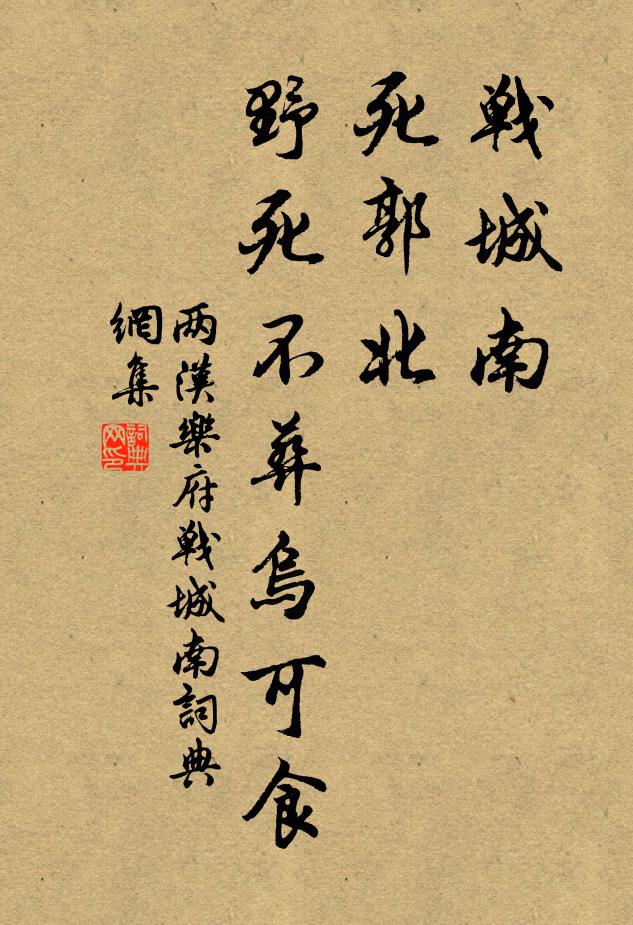 戦城南
死郭北
野死不葬烏可食
两漢樂府戦城南詞典
網集
詞典网印